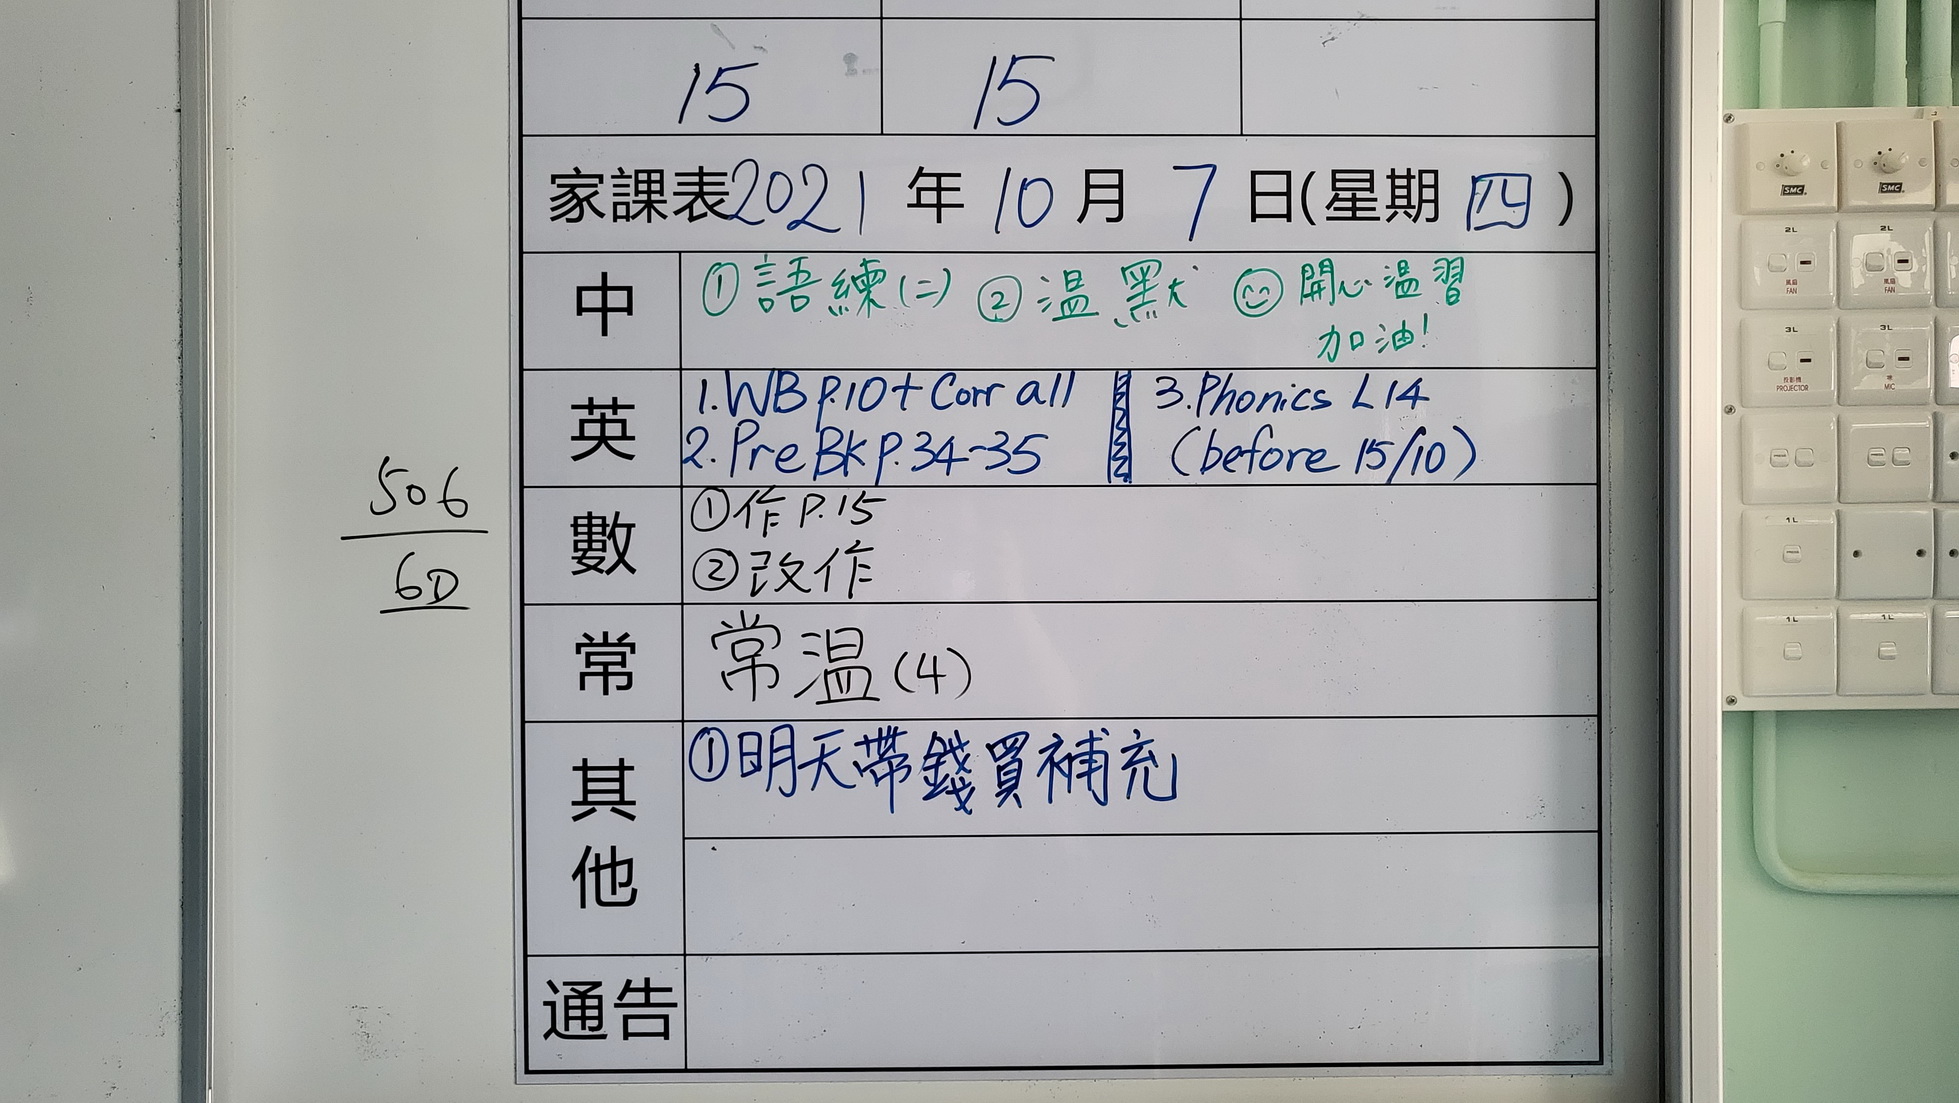 15 15
家課表2021年10月7日(星期四)
中 ①語練(二) ②温默 開心温習
加油!
英 1.WB P.10+Corr all 3.Phonics L14
2.Pre BK P.34-35 (before 15/10)
506
6D
數 ①作P.15
②改作
常 常温(4)
其他 ①明天帶錢買補充
通告
SMC SMC
2L 2L
風扇 風扇
FAN FAN
3L 3L
投影機 咪
PROJECTOR MIC
1L
1L 1L